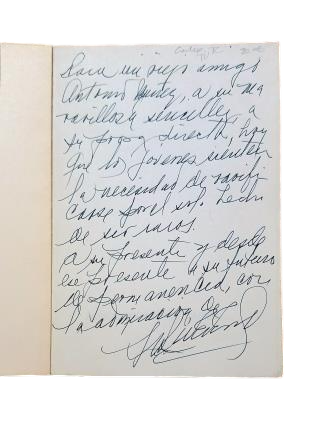 Para un viejo amigo
Antonio a su ma
ravillosa y sencilla, a
su prosa directa, hoy
que los jóvenes sienten
la necesidad de
carse por el solo hecho
de ser raros.
a su presente y desde
ese presente a su futuro
de permanencia, con
la admiración de